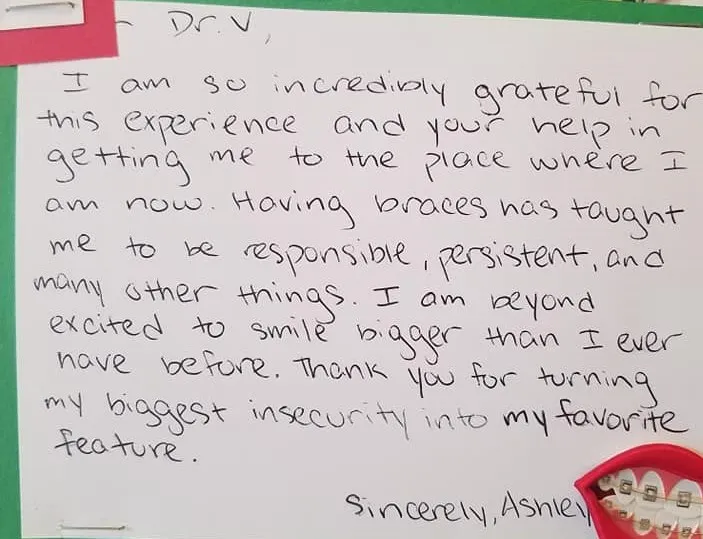 Dr. V,
I am so incredibly grateful for
this experience and your help in
getting me to the place where I
am now. Having braces has taught
me to be responsible, persistent, and
many other things. I am beyond
excited to smile bigger than I ever
have before. Thank you for turning
my biggest insecurity into my favorite
feature.
Sincerely, Ashley